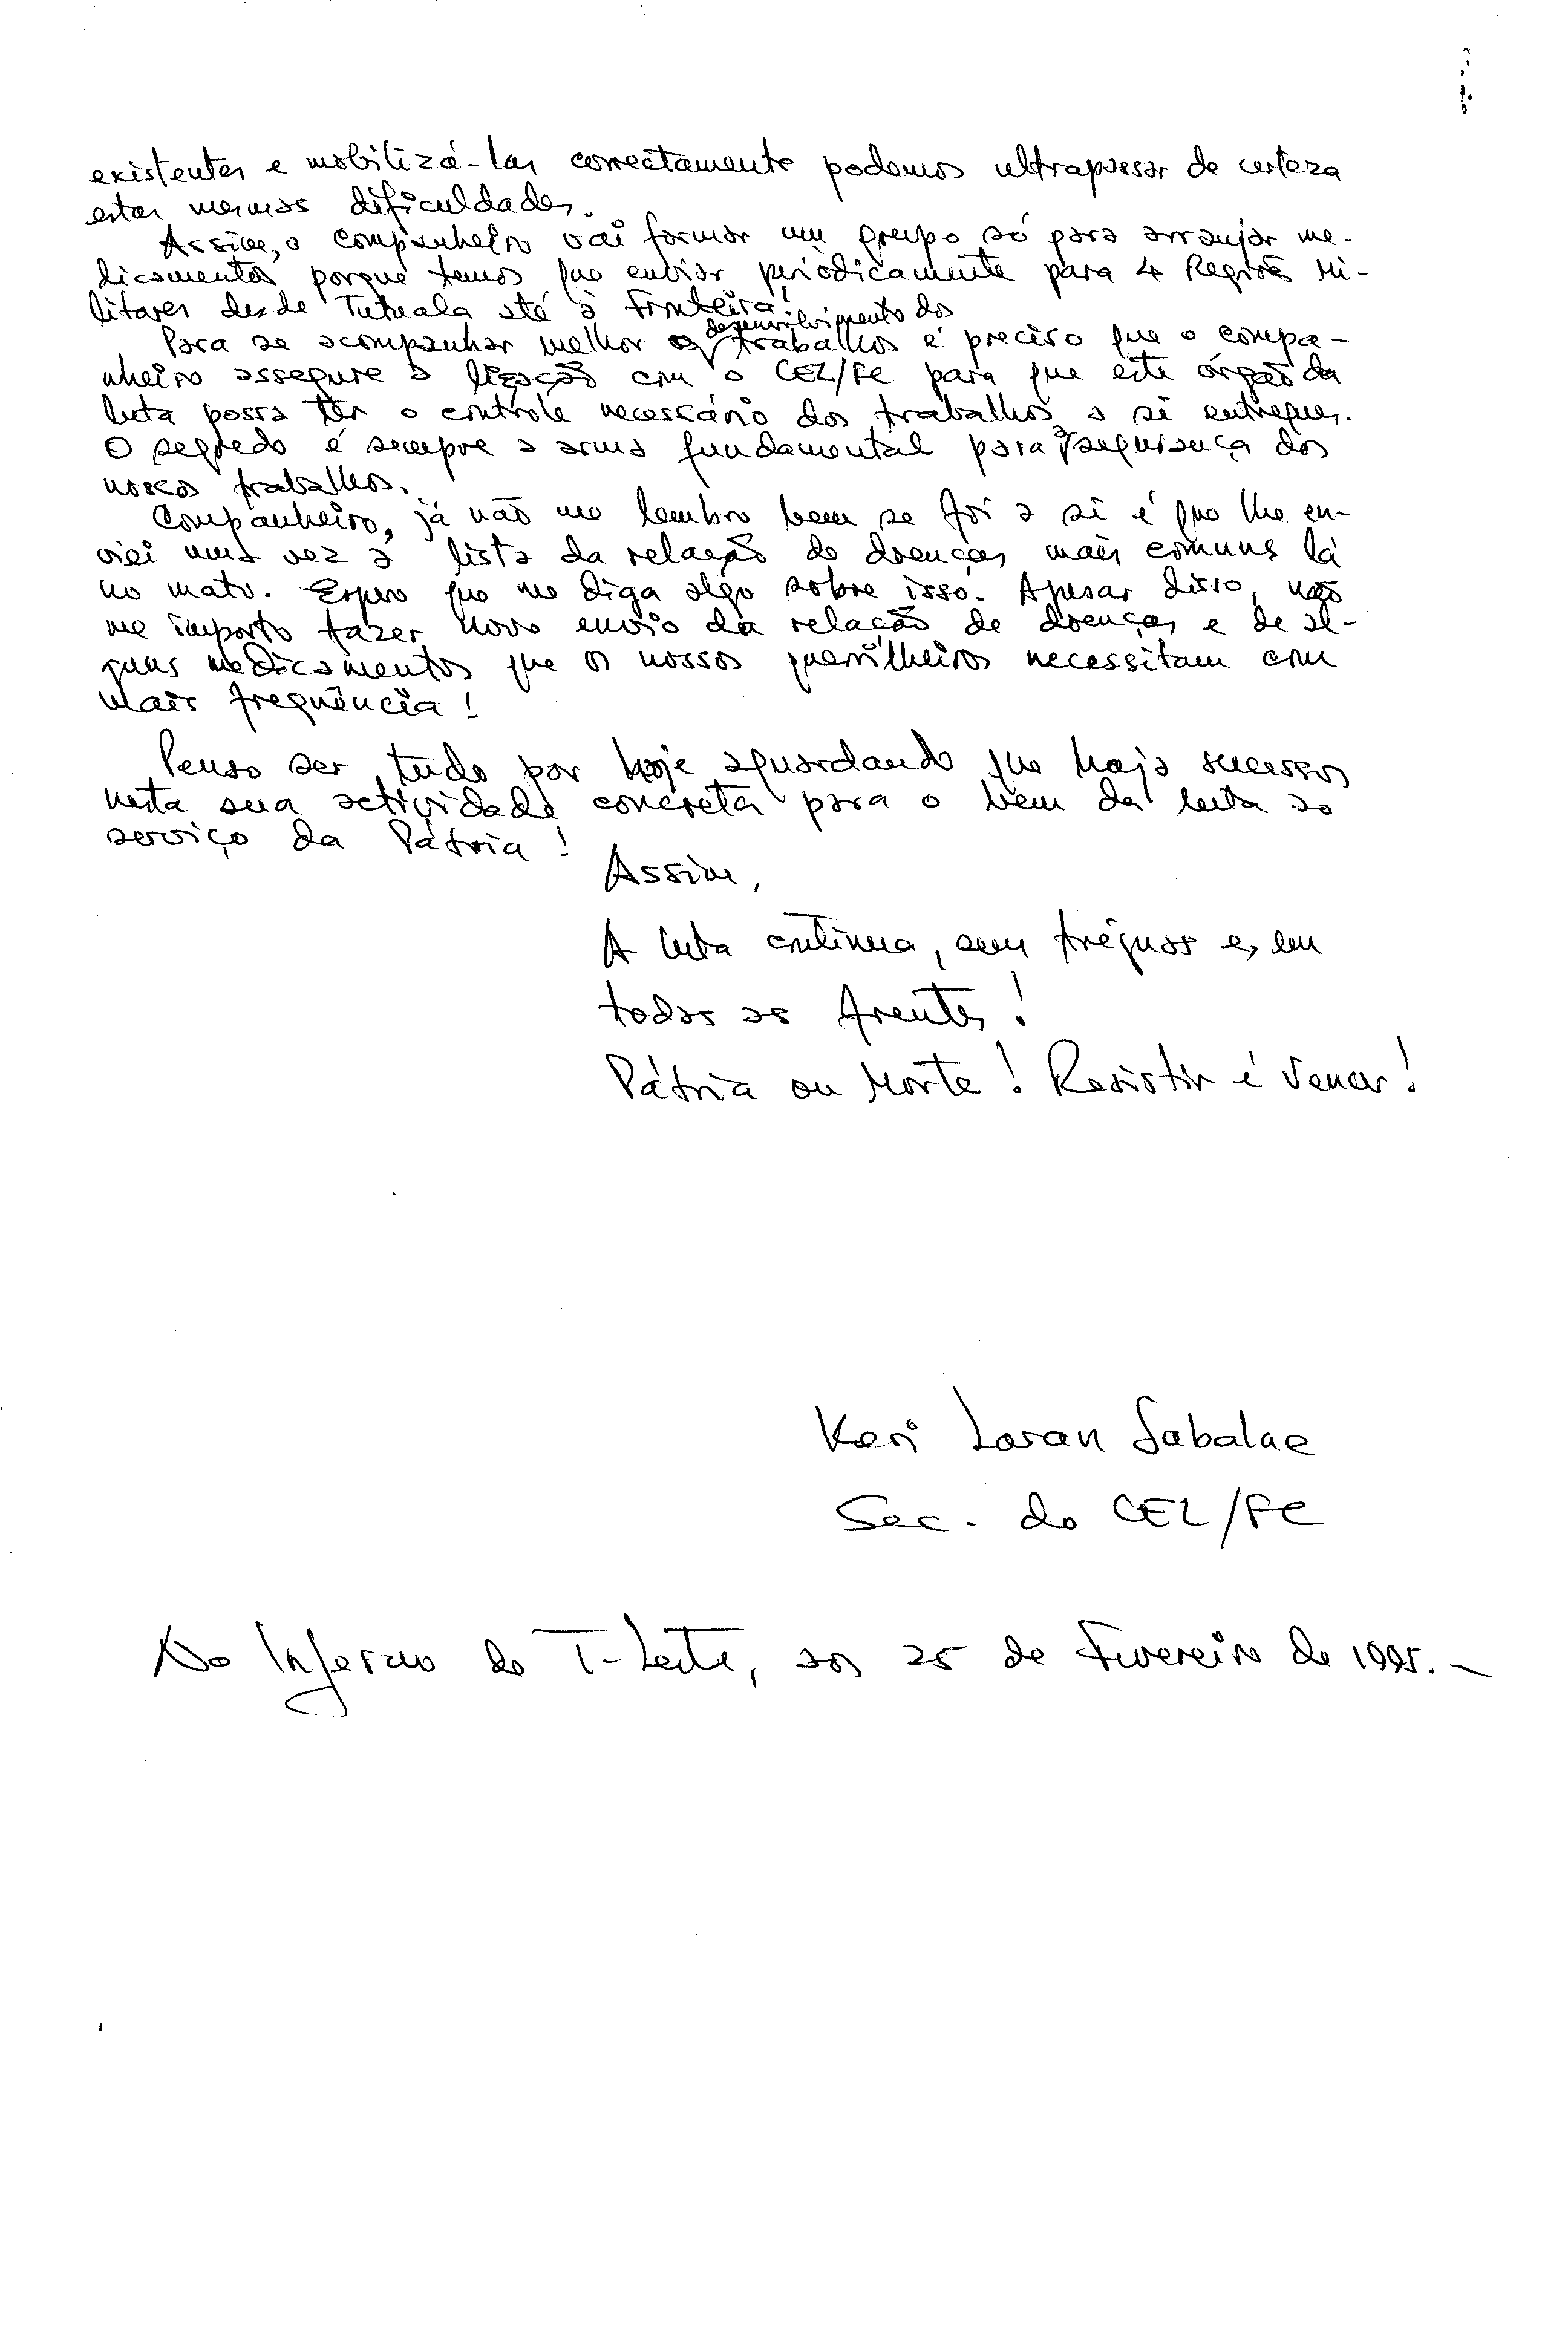 existentes e mobilizá-las correctamente podemos ultrapassar de certeza
estas mesmas dificuldades.
Assim, o companheiro vai formar um grupo só para arranjar me-
dicamentos porque temos que enviar periòdicamente para 4 Regiões Mi-
litares desde Tutuala até à fronteira!
Para se acompanhar melhor o desenvolvimento dos trabalhos é preciso que o compa-
nheiro assegure a ligação com o CEL/FC para que este órgão da
luta possa ter o controle necessário dos trabalhos a si entregues.
O segredo é sempre a arma fundamental para a segurança dos
nossos trabalhos.
Companheiro, já não me lembro bem se foi a si é que lhe en-
viei uma vez a lista da relação de doenças mais comuns lá
no mato. Espero que me diga algo sobre isso. Apesar disso, não
me importo fazer novo envio da relação de doenças e de al-
guns medicamentos que os nossos guerrilheiros necessitam com
mais frequência!
Penso ser tudo por hoje aguardando que haja sucessos
nesta sua actividade concreta para o bem da luta ao
serviço da Pátria!
Assim,
A luta continua, sem tréguas e, em
todas as frentes!
Pátria ou Morte! Resistir é Vencer!
Keri Laran Sabalae
Sec. do CEL/FC
No Inferno de T-Leste, aos 25 de Fevereiro de 1995.-